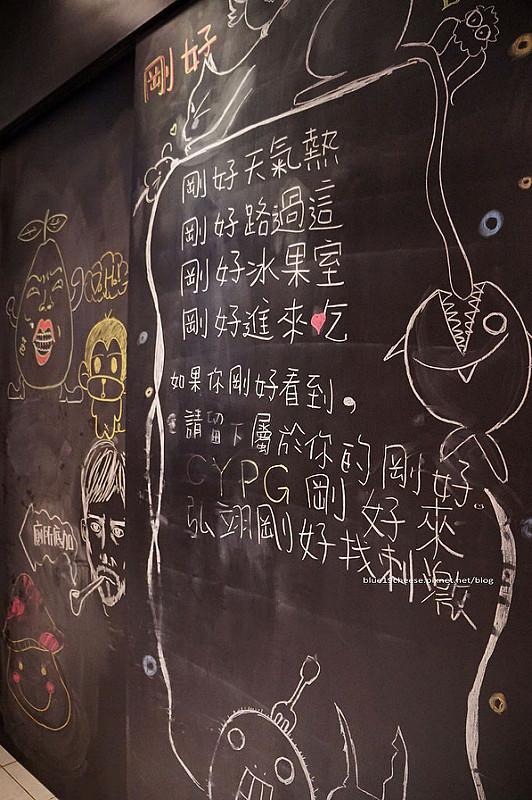 剛好
剛好天氣熱
剛好路過這
剛好冰果室
剛好進來吃
如果你剛好看到，
請留下屬於你的剛好。
CYPG剛好來
弘翊剛好找刺激
廁所底加
blue19cheese.pixnet.net/blog